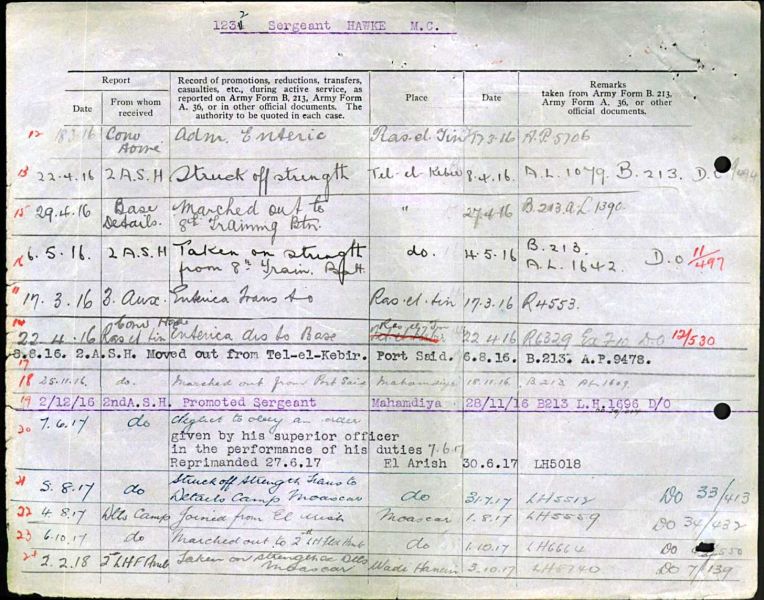 1232 Sergeant HAWKE M.C.
Report
Date
From whom received
Record of promotions, reductions, transfers,
casualties, etc., during active service, as
reported on Army Form B. 213, Army Form
A. 36, or in other official documents. The
authority to be quoted in each case.
Place
Date
Remarks
taken from Army Form B. 213,
Army Form A. 36, or other
official documents.
12 18.3.16 Conv Home Adm. Enteric Ras.el.Tin 17.3.16 A.P.5706
13 22.4.16 2 A.S.H Struck off strength Tel-el-Kebir 8.4.16 A.L. 1079. B.213.
15 29.4.16 Base Details. Marched out to
8th Training Btn. " 27.4.16 B.213 A.L 1390.
16 6.5.16 2 A.S.H Taken on strength
from 8th Train. Batt. do. 4.5.16 B.213.
A.L. 1642. D.O 11/497
11 17.3.16 3. Aux. Enterica Trans to Ras.el.tin 17.3.16 R4553.
14 22.4.16 Conv Home Ras el tin Enterica dis to Base Ras.el.Tin 22.4.16 R6329 D.O 12/530
8.8.16. 2.A.S.H. Moved out from Tel-el-Kebir. Port Said. 6.8.16. B.213. A.P.9478.
17
18 25.11.16. do. Marched out from Port Said Mahamdiya 18.11.16 B.213 AL 1609
19 2/12/16 2ndA.S.H. Promoted Sergeant Mahamdiya 28/11/16 B213 L.H.1696 D/O
20 7.6.17 do Neglect to obey an order
given by his superior officer
in the performance of his duties 7.6.17
Reprimanded 27.6.17 El Arish 30.6.17 LH5018
21 5.8.17 do Struck off Strength Trans to
Details Camp Moascar do 31.7.17 LH5512 DO 33/413
22 4.8.17 Dtls Camp Joined from El Arish Moascar 1.8.17 LH5559 DO 34/432
23 6.10.17 do Marched out to 2nd LH Fld Amb do 1.10.17 LH6664 DO
24 2.2.18 2nd LHF Amb Taken on strength ex Dtls
Moascar Wadi Hanein 3.10.17 DO 7/139